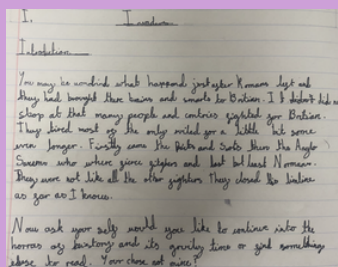 I. Invaders
Introduction
You may be wondring what happend just after Romans left and
they had brought there brains and smarts to Britian. I didn't
stop at that many people and contries fighted for Britian.
They tired most of the only for a little bit some
even longer. Firstly came the Picts and Scots then the Anglo
Saxons who where fierce and last but least Normans.
They were not like all the other fighters They closed this timeline
as far as I know.
Now ask your self would you like to continue into the
horras of history and its time or find something
else to read. Your chose not mine?